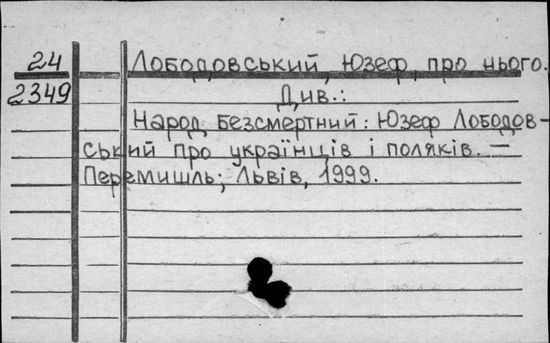 24 Лободовський, Юзеф, про нього.
2349 Див.:
Народ безсмертний: Юзеф Лободов-
ський про українців і поляків. —
Перемишль; Львів, 1999.